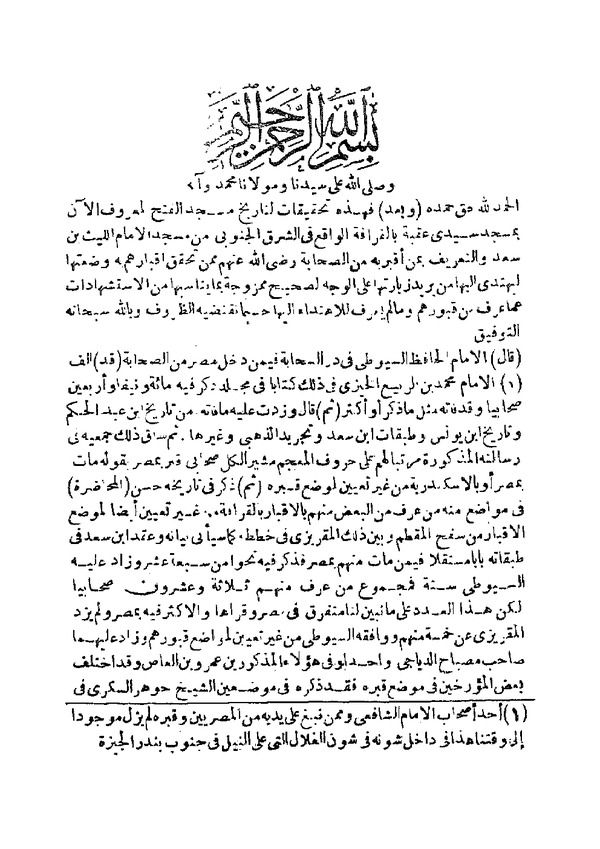 بسم الله الرحمن الرحيم
وصلى الله على سيدنا ومولانا محمد وآله
الحمد لله حق حمده (وبعد) فهذه تحقيقات لتاريخ مسجد الفتح المعروف الآن
بمسجد سيدي عقبة بالقرافة الواقع في الشرق الجنوبي من مسجد الامام الليث بن
سعد والتعريف بمن أقبر به من الصحابة رضى الله عنهم ممن تحقق اقبارهم به وضعتها
ليهتدى اليها من يريد زيارتها على الوجه الصحيح ممزوجة بما يناسبها من الاستشهادات
عما عرف من قبورهم ومالم يعرف للاهتداء اليها حسبما تقتضيه الظروف وبالله سبحانه
التوفيق
(قال) الامام الحافظ السيوطى فى در السحابة فيمن دخل مصر من الصحابة (قد) الف
(١) الامام محمد بن الربيع الجيزى فى ذلك كتابا فى مجلد ذكر فيه مائة ونيفا وأربعين
صحابيا وقد فاته مثل ما ذكر أو أكثر (ثم) قال وزدت عليه ما فاته من تاريخ ابن عبد الحكم
وتاريخ ابن يونس وطبقات ابن سعد وتجريد الذهبى وغيرها. ثم ساق ذلك جميعه فى
رسالته المذكورة مرتبا لهم على حروف المعجم مشيرا لكل صحابى قبر بمصر بقوله مات
بمصر أو بالاسكندرية من غير تعيين لموضع قبره (ثم) ذكر فى تاريخه حسن (المحاضرة)
فى مواضع منه من عرف من البعض منهم بالاقبار بالقرافة .. غير تعيين أيضا لموضع
الاقبار من سفح المقطم وبين ذلك المقريزى فى خططه كما سيأتى بيانه وعقد ابن سعد فى
طبقاته بابا مستقلا فيمن مات منهم بمصر فذكر فيه نحوا من سبعة عشر وزاد عليه
السيوطى ستة فمجموع من عرف منهم ثلاثة وعشرون صحابيا
لكن هذا العدد على ما تبين لنا متفرق فى مصر وقراها والاكثر فيه بمصر ولم يزد
المقريزى عن خمسة منهم ووافقه السيوطى من غير تعيين لمواضع قبورهم وزاد عليهما
صاحب مصباح الدياجى واحدا وفى هؤلاء المذكورين عمرو بن العاص وقد اختلف
بعض المؤرخين فى موضع قبره فقد ذكره فى موضعين الشيخ جوهر السكرى فى
(١) أحد أصحاب الامام الشافعى وممن نبغ على يديه من المصريين وقبره لم يزل موجودا
إلى وقتنا هذا فى داخل شونه فى شون الغلال التى على النيل فى جنوب بندر الجيزة